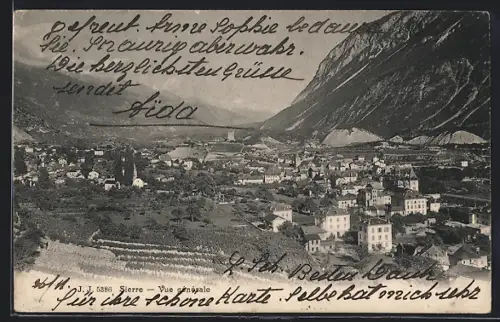 gefreut. Arme Sophie bedaure
Sie. Traurig aber wahr.
Die herzlichsten Grüsse
sendet
Aida
J. J. 5386 Sierre — Vue générale
Besten Dank
für ihre schöne Karte. Selbe hat mich sehr